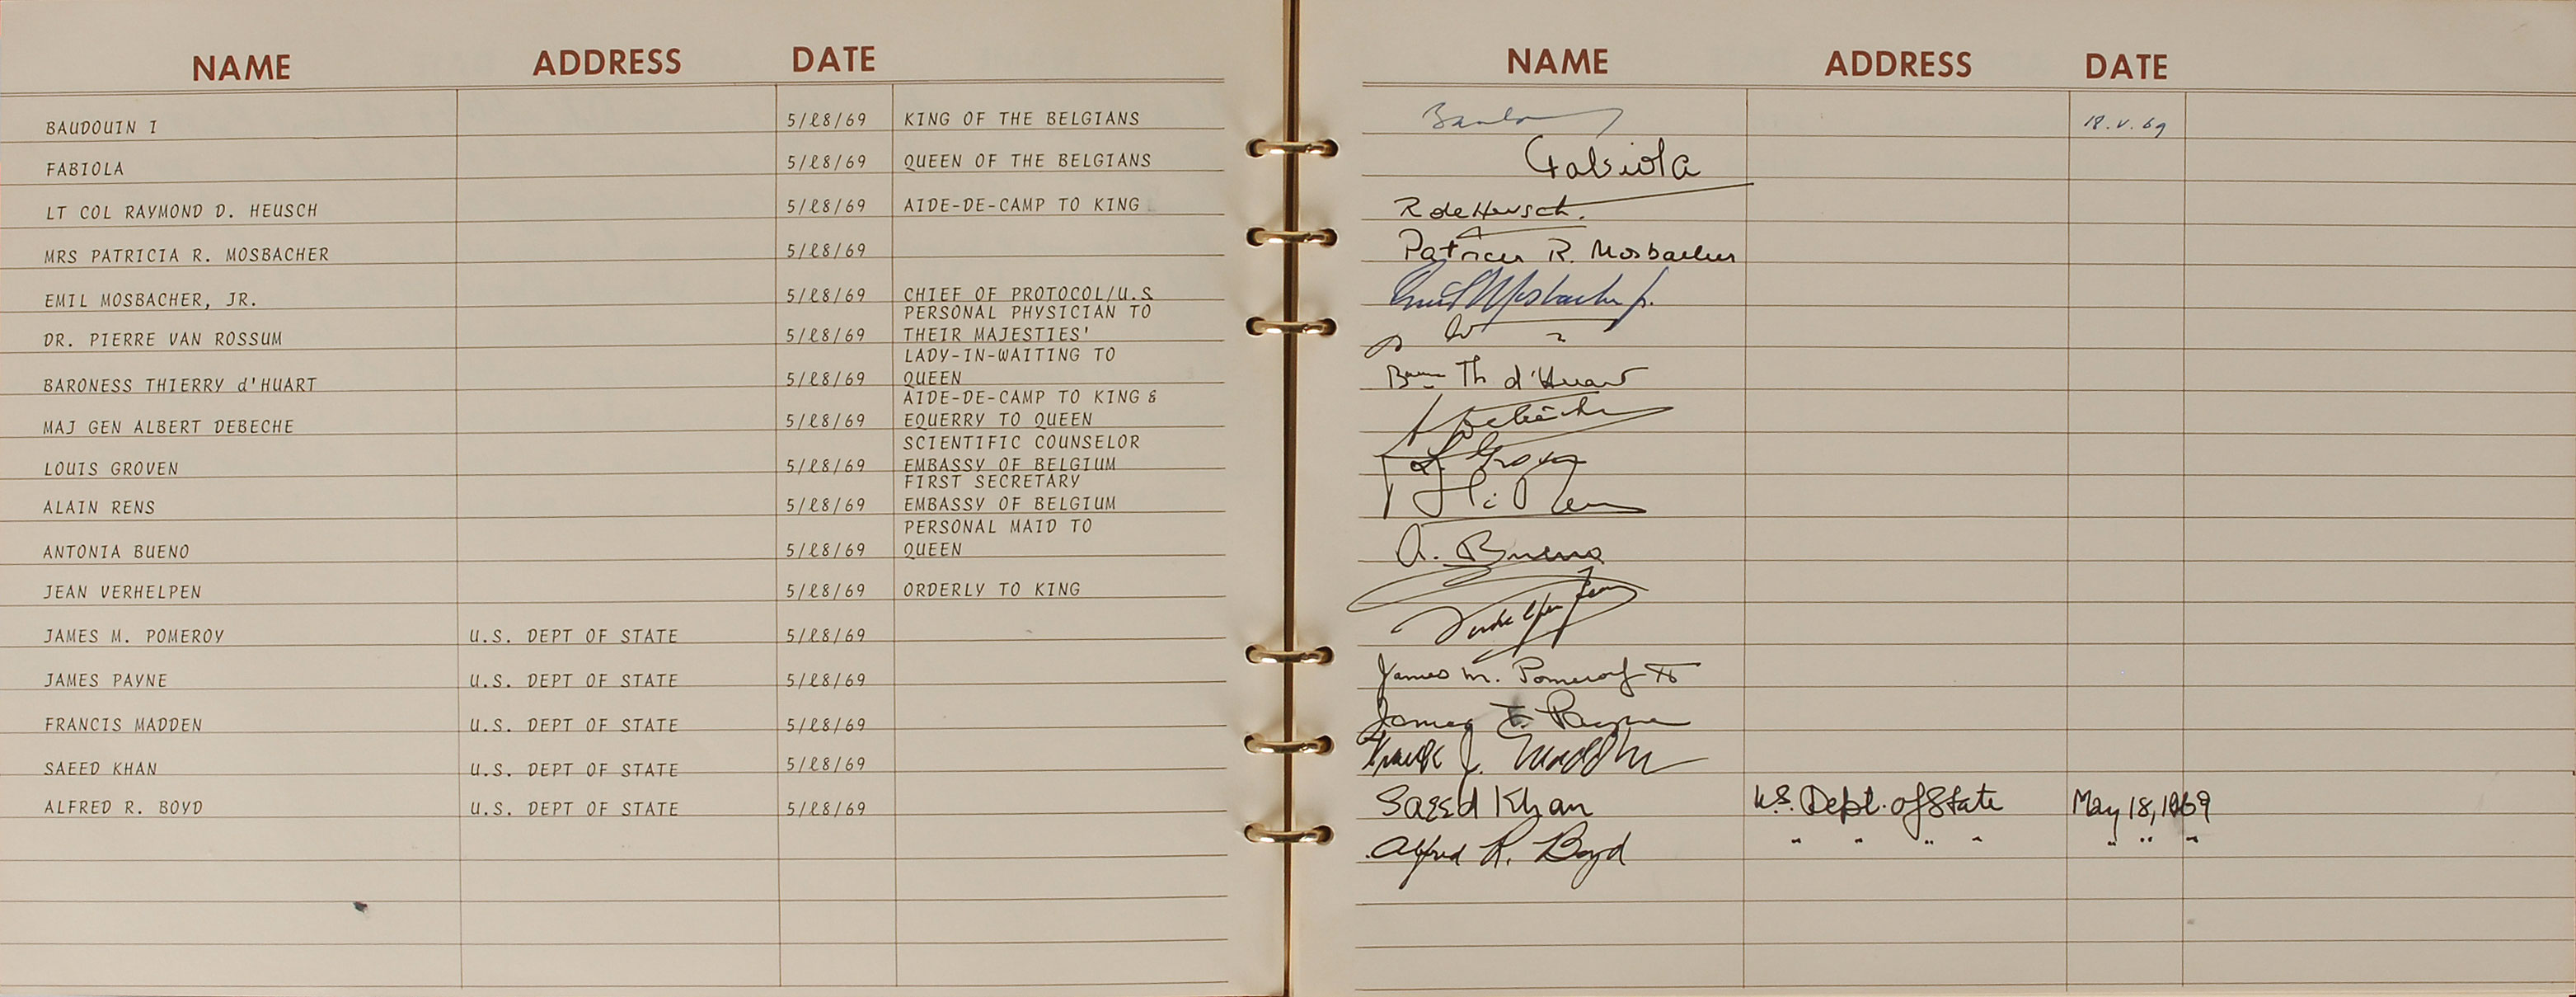 NAME ADDRESS DATE
BAUDOUIN I 5/18/69 KING OF THE BELGIANS
FABIOLA 5/18/69 QUEEN OF THE BELGIANS
LT COL RAYMOND D. HEUSCH 5/18/69 AIDE-DE-CAMP TO KING
MRS PATRICIA R. MOSBACHER 5/18/69
EMIL MOSBACHER, JR. 5/18/69 CHIEF OF PROTOCOL/U.S
PERSONAL PHYSICIAN TO
DR. PIERRE VAN ROSSUM 5/18/69 THEIR MAJESTIES'
LADY-IN-WAITING TO
BARONESS THIERRY d'HUART 5/18/69 QUEEN
AIDE-DE-CAMP TO KING &
MAJ GEN ALBERT DEBECHE 5/18/69 EQUERRY TO QUEEN
SCIENTIFIC COUNSELOR
LOUIS GROVEN 5/18/69 EMBASSY OF BELGIUM
FIRST SECRETARY
ALAIN RENS 5/18/69 EMBASSY OF BELGIUM
PERSONAL MAID TO
ANTONIA BUENO 5/18/69 QUEEN
JEAN VERHELPEN 5/18/69 ORDERLY TO KING
JAMES M. POMEROY U.S. DEPT OF STATE 5/18/69
JAMES PAYNE U.S. DEPT OF STATE 5/18/69
FRANCIS MADDEN U.S. DEPT OF STATE 5/18/69
SAEED KHAN U.S. DEPT OF STATE 5/18/69
ALFRED R. BOYD U.S. DEPT OF STATE 5/18/69
NAME ADDRESS DATE
18.V.69
Fabiola
R de Heusch.
Patricia R. Mosbacher
Emil Mosbacher Jr.
Th d'Huart
L. Groven
A. Bueno
James M. Pomeroy
James F. Payne
Frank J. Madden
Saeed Khan U.S. Dept. of State May 18, 1969
Alfred R. Boyd " " " " " " "